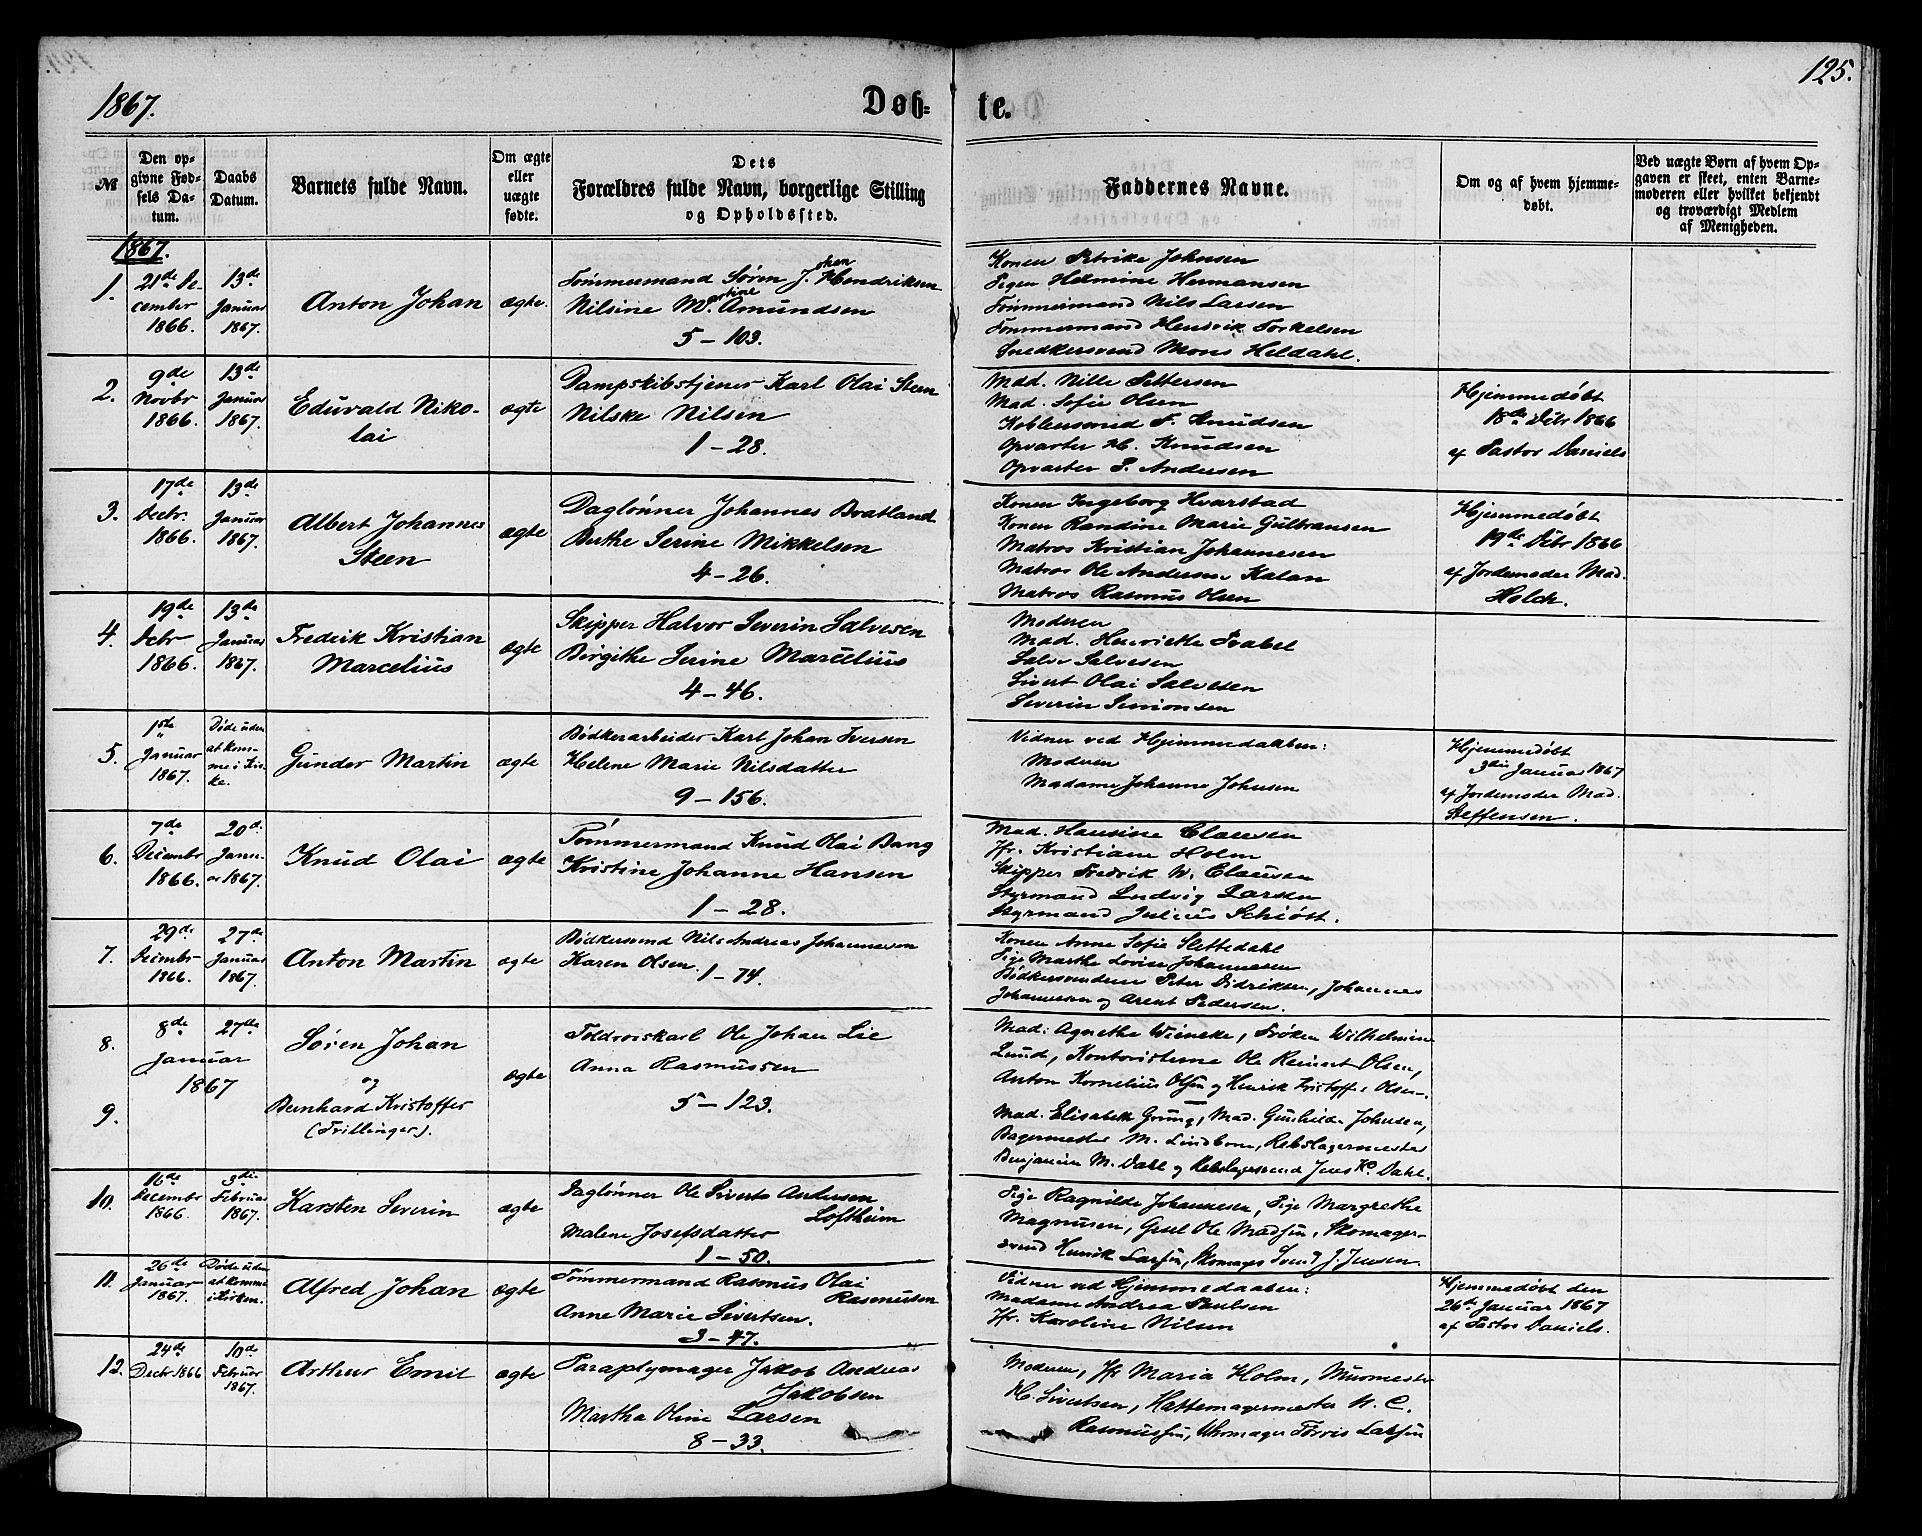 1867.
Døb=
te.
125.
№
Den op=
givne Fød=
sels Da=
tum.
Daabs
Datum.
Barnets fulde Navn.
Om ægte
eller
uægte
fødte.
Dets
Forældres fulde Navn, borgerlige Stilling
og Opholdssted.
Faddernes Navne.
Om og af hvem hjemme=
døbt.
Ved uægte Børn af hvem Op=
gaven er skeet, enten Barne=
moderen eller hvilket bekjendt
og troværdigt Medlem
af Menigheden.
1867.
1.
21de De-
cember
1866.
13de
Januar
1867.
Anton Johan
ægte.
Tømmermand Søren Johan Hendriksen
Nilsine Martine Amundsen
5 - 103.
Konen Petrike Johnsen
Pigen Helmine Hermansen
Tømmermand Nils Larsen
Tømmermand Henrik Torkelsen
Snedkersvend Mons Heldahl.
2.
9de
Novbr
1866.
13de
Januar
1867.
Eduvald Niko-
lai
ægte
Dampskibstjener Karl Olai Steen
Nilske Nilsen
1 - 28.
Mad. Nille Pettersen
Mad. Sofie Olsen
F. Knudsen
Opvarter H. Knudsen
Opvarter P. Andersen
Hjemmedøbt
18de Debr 1866
af Pastor Daniels
3.
17de
Decbr.
1866.
13de
Januar
1867.
Albert Johannes
Steen
ægte
Daglønner Johannes Bratland
Berthe Serine Mikkelsen
4 - 26.
Konen Ingeborg Hvarstad
Konen Randine Marie Gulbransen
Matros Kristian Johannesen
Matros Ole Andersen Kalan
Matros Rasmus Olsen
Hjemmedøbt
19de Debr 1866
af Jordemoder Mad.
Holck.
4.
19de
Debr
1866.
13de
Januar
1867.
Fredrik Kristian
Marcelius
ægte
Skipper Halvor Severin Salvesen
Birgithe Serine Marcelius
4 - 46.
Moderen
Mad. Henriette Isabel
Salve Salvesen
Sivert Olai Salvesen
Severin Simonsen
5.
1ste
Januar
1867.
Døde uden
at kom-
me i Kir-
ke.
Gunder Martin
ægte
Bødkerarbeider Karl Johan Iversen
Helene Marie Nilsdatter
9 - 156.
Vidner ved Hjemmedaaben:
Moderen
Madame Johanne Johnsen
Hjemmedøbt
3die Januar 1867
af Jordemoder Mad.
Steffensen.
6.
7de
Decembr
1866.
20de
Janu-
ar 1867.
Knud Olai
ægte
Tømmermand Knud Olai Bang
Kristine Johanne Hansen
1 - 28.
Mad. Hansine Clausen
Jfr. Kristiane Holm
Skipper Fredrik W. Clausen
Styrmand Ludvig Larsen
Styrmand Julius Schiøtt.
7.
29de
Decembr
1866.
27de
Januar
1867.
Anton Martin
ægte
Bødkersvend Nils Andreas Johannesen
Karen Olsen. 1 - 74.
Konen Anne Sofie Slettedahl
Pige Marthe Lovise Johannesen
Bødkersvendene Peter Didriksen, Johannes
Johannesen og Arent Pedersen.
8.
9.
8de
Januar
1867
27de
Søren Johan
og
Bernhard Kristoffer
(Tvillinger).
ægte
Toldroerskarl Ole Johan Lie
Anna Rasmussen
5 - 123.
Mad. Agnethe Wieneke, Frøken Wilhelmine
Lund, Kontoristerne Ole Reinert Olsen,
Anton Kornelius Olsen og Henrik Kristoffer Olsen.
Mad. Elisabeth Grung, Mad. Gunhilde Johnsen,
Bagermester M. Lindboe, Rebslagermester
Benjamin M. Dahl og Rebslagersvend Jens Dahl.
10.
16de
Decembr
1866.
3die
Februar
1867.
Karsten Severin
ægte
Daglønner Ole Siverts Andersen
Loftheim
Malene Josefsdatter
1 - 50.
Pige Ragnilde Johannesen, Pige Margrethe
Magnusen, Gsel Ole Madsen, Skomager-
svend Henrik Larsen, Skomagersvend J. Jensen.
11.
26de
Januar
1867.
Døde uden
at komme
i Kirken.
Alfred Johan
ægte
Tømmermand Rasmus Olai
Rasmusen
Anne Marie Sivertsen.
3 - 47.
Vidner ved Hjemmedaaben:
Madame Andrea Paulsen
Jfr. Karoline Nilsen
Hjemmedøbt den
26de Januar 1867
af Pastor Daniels.
12.
24de
Decbr 1866
10de
Februar
1867.
Arthur Emil
ægte
Paraplymager Jakob Andreas
Jakobsen
Martha Oline Larsen
8 - 33.
Moderen, Jfr Maria Holm, Murmester
H. Sivertsen, Hattemagermester N. C.
Rasmussen, Skomager Larsen